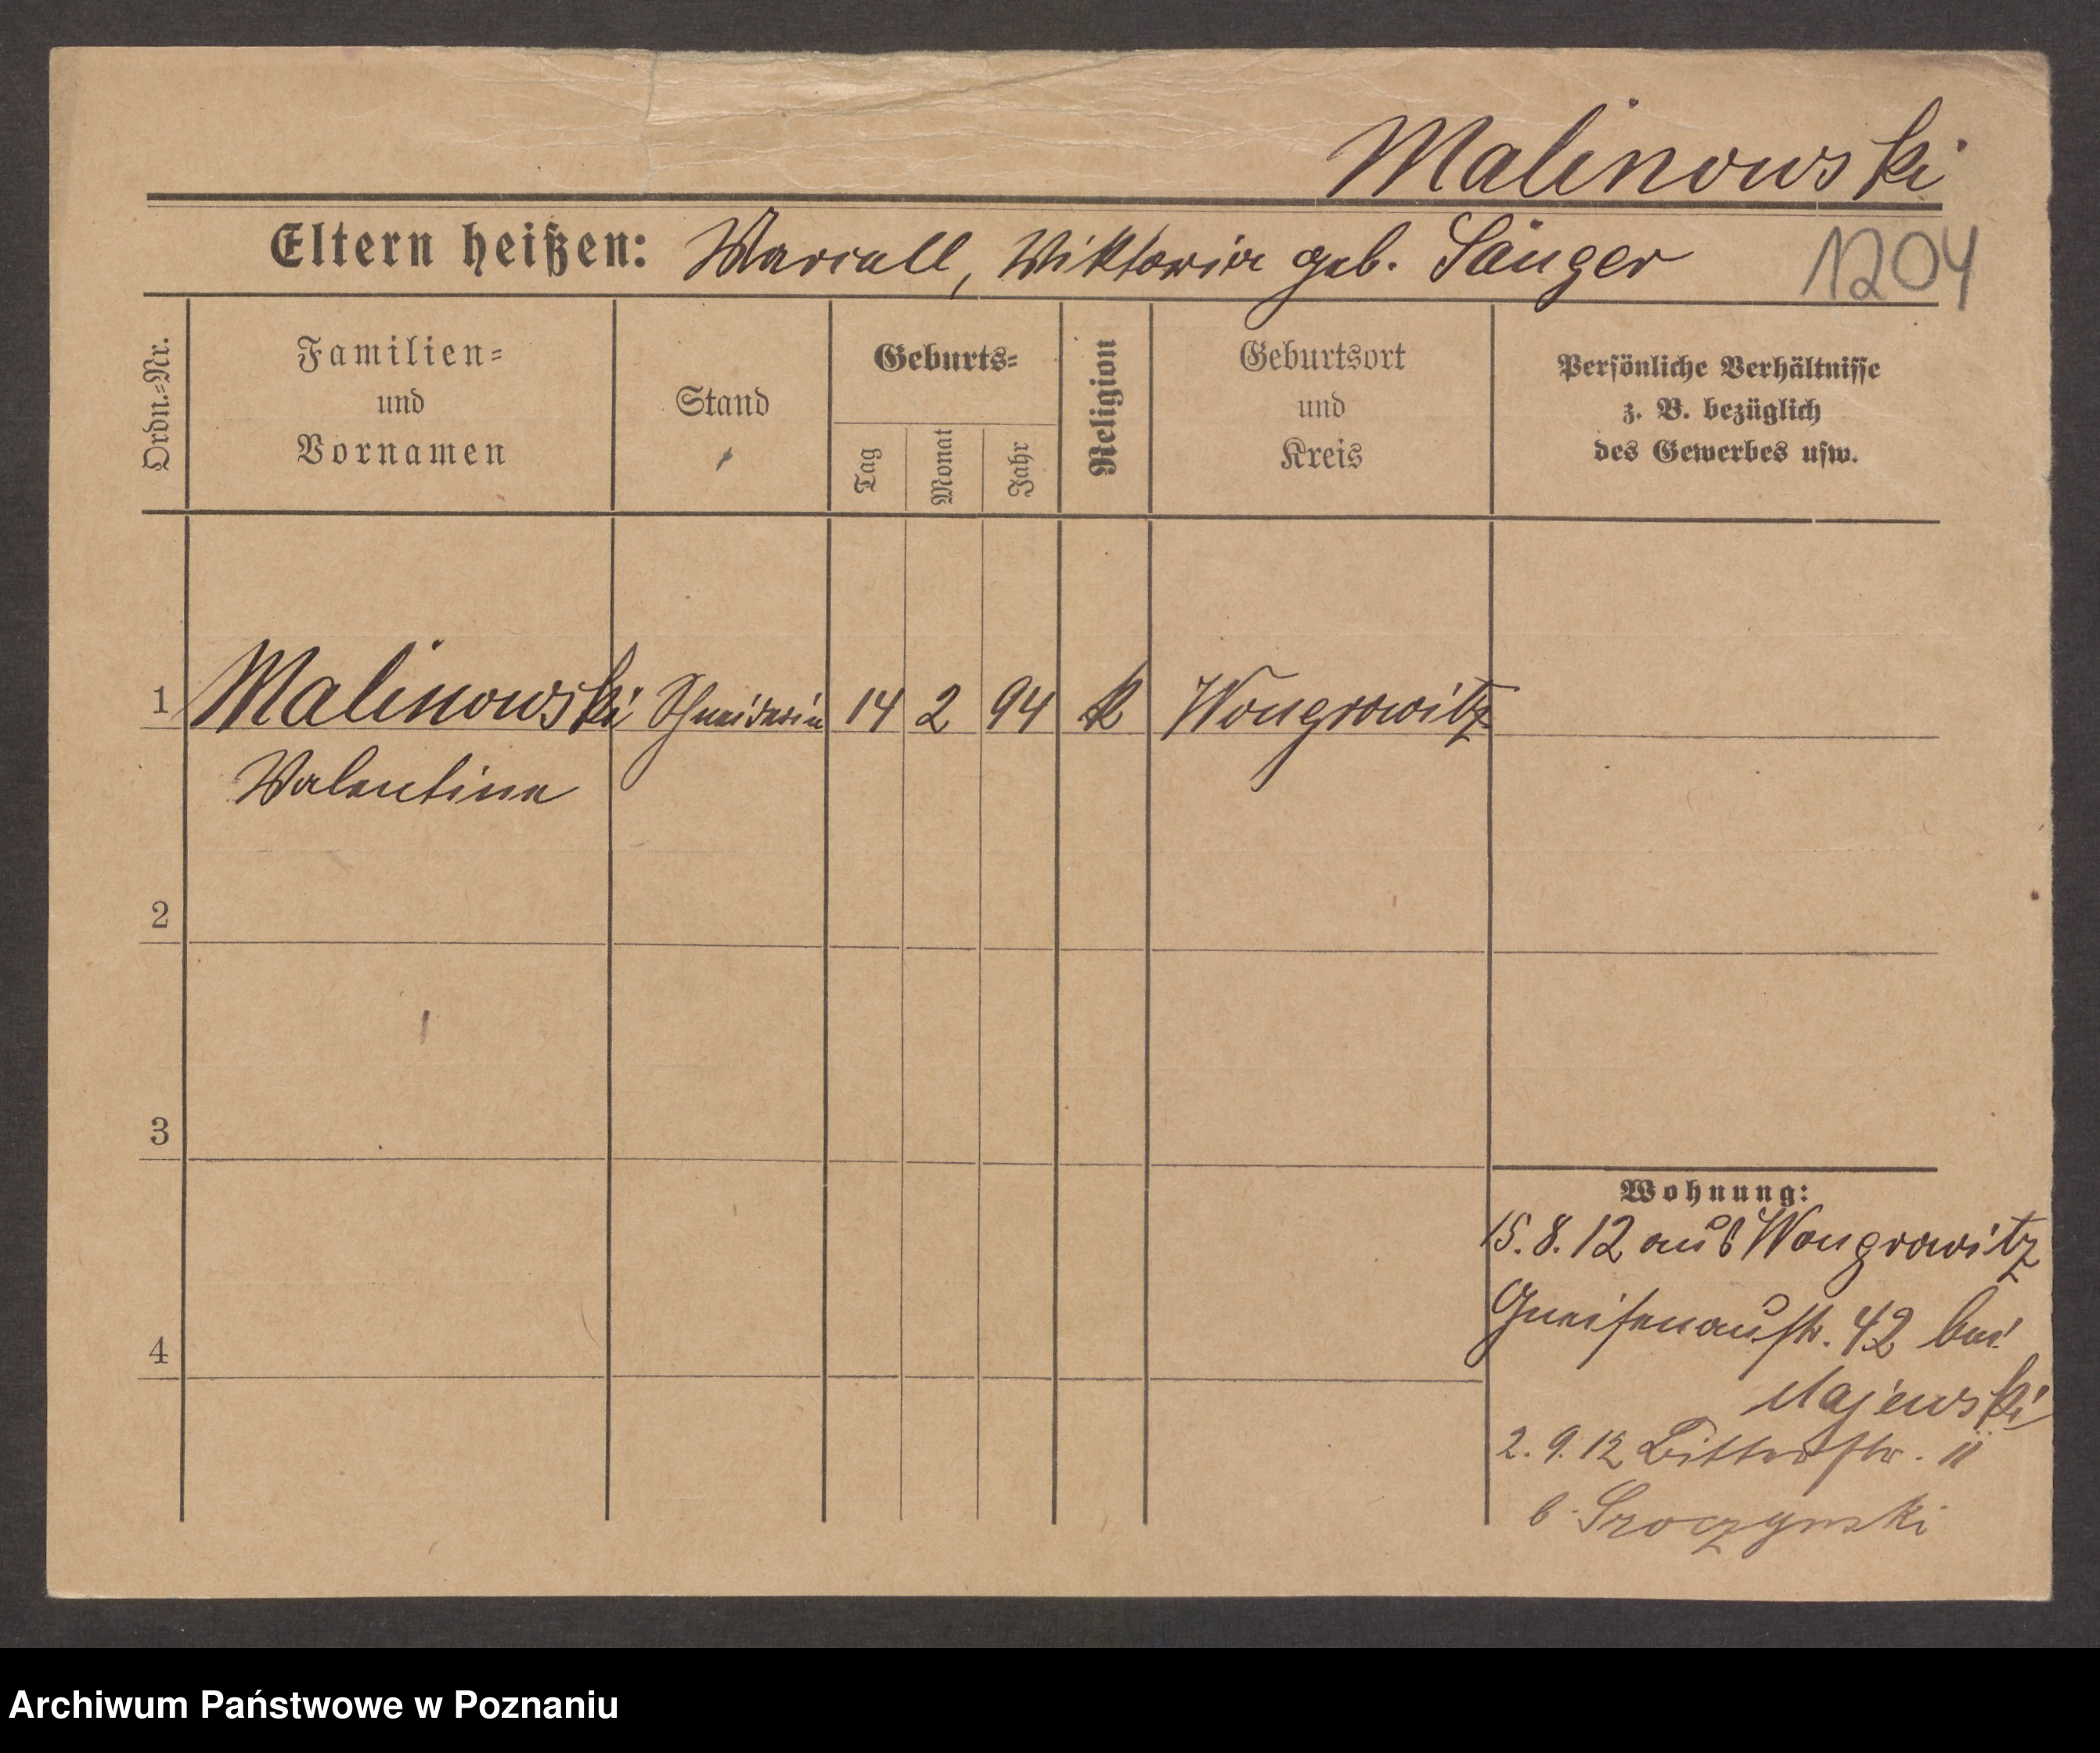 Malinowski
Eltern heißen: Marcell, Wiktoria geb. Sänger 1204
Ordn.-Nr.
Familien-
und
Vornamen
Stand
Geburts-
Tag
Monat
Jahr
Religion
Geburtsort
und
Kreis
Persönliche Verhältnisse
z. B. bezüglich
des Gewerbes usw.
1 Malinowski Schneiderin 14 2 94 K Wongrowitz
Valentina
2
3
4
Wohnung:
15. 8. 12 aus Wongrowitz
Gneisenaustr. 42 bei
Majewski
2. 9. 12 Bitterstr. 11
b. Sroczynski
Archiwum Państwowe w Poznaniu